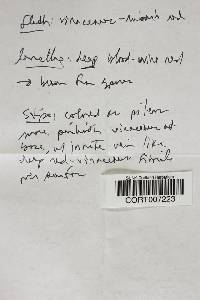 Flesh: vinaceous-brownish red
Lamellae: deep blood-wine red
→ brown from spores
Stipe; colored as pileus
more pinkish vinaceous at
base, w/ innate vein like
deep red-vinaceous fibrils
CORT007223